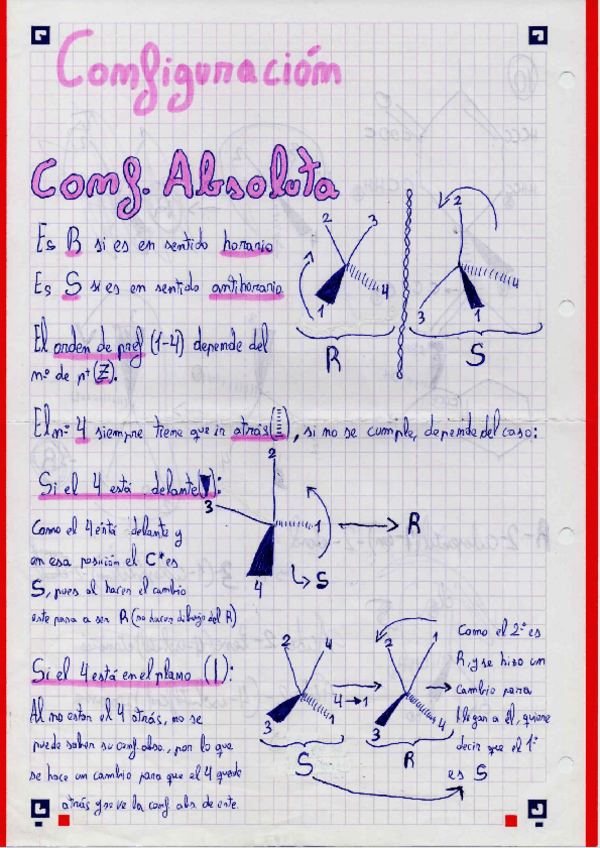 Configuración
Conf. Absoluta
Es R si es en sentido horario
Es S si es en sentido antihorario
El orden de pref (1-4) depende del
nº de p⁺ (Z).
2 3 1 4
R
2 4 1 3
S
El nº 4 siempre tiene que ir atrás, si no se cumple, depende del caso:
Si el 4 está delante:
Como el 4 está delante y
en esa posición el C* es
S, pues al hacer el cambio
este pasa a ser R (no hacer dibujo del R)
2 3 1 4
S
R
Si el 4 está en el plano (|):
Al no estar el 4 atrás, no se
puede saber su conf. abso., por lo que
se hace un cambio para que el 4 quede
atrás y se ve la conf. abs. de este.
2 4 3 1
S
4→1
2 1 3 4
R
Como el 2º es
R, y se hizo un
cambio para
llegar a él, quiere
decir que el 1º
es S